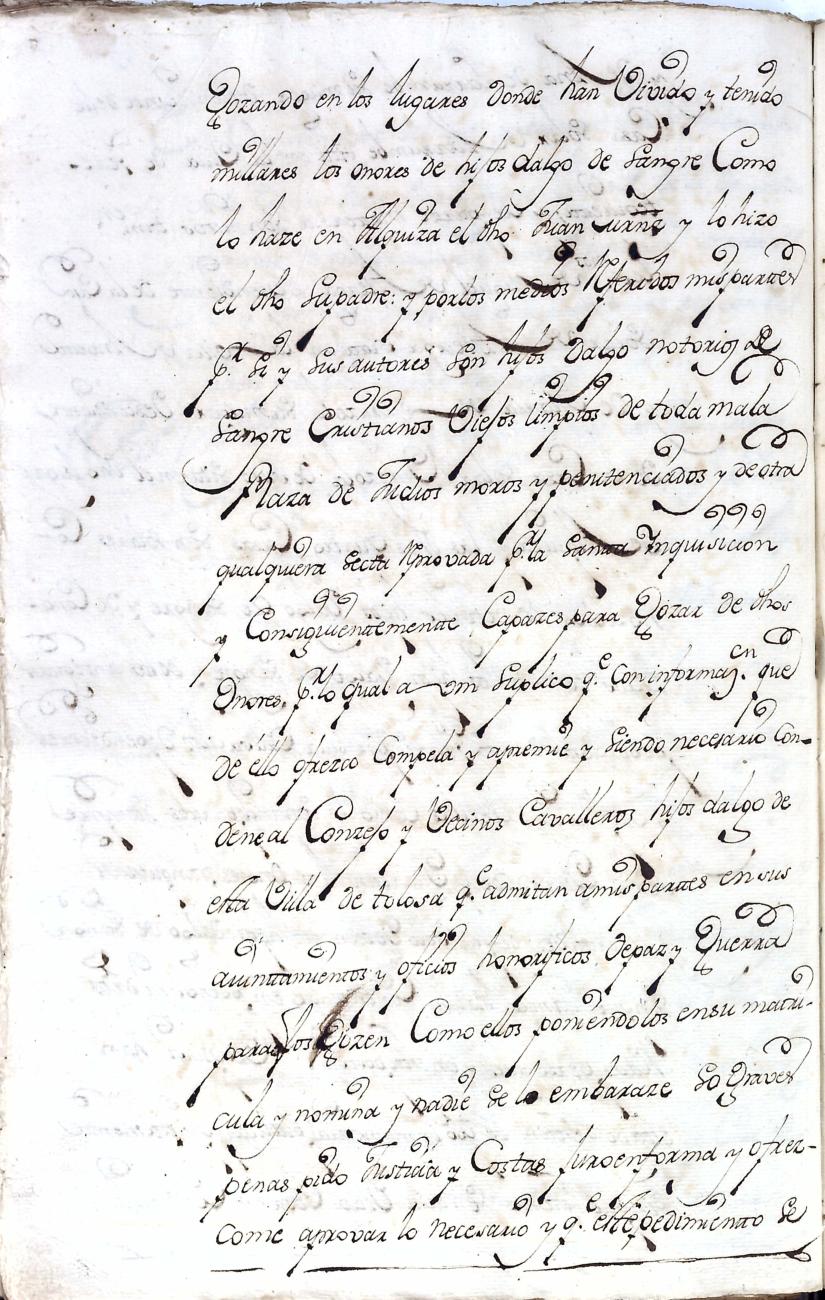 Gozando en los lugares donde han Vivido y tenido
millares los onores de hijos dalgo de sangre Como
lo haze en Alquiza el dho Juan y lo hizo
el dho su padre: y por los medios Referidos mis partes
p.r si y sus autores son hijos dalgo notorios de
sangre Cristianos Viejos limpios de toda mala
Raza de Judios moros y penitenciados y de otra
qualquiera secta Reprovada p.r la santa Inquisicion
y Consiguientemente Capazes para Gozar de dhos
Onores, p.r lo qual a vm suplico q.e con informaz.on que
de ello ofrezco Compela y apremie y siendo necesario Con-
dene al Conzejo y Vecinos Cavalleros hijos dalgo de
esta Villa de tolosa q.e admitan a mis partes en sus
aiuntamientos y oficios honorificos de paz y Guerra
para q los Gozen Como ellos poniendolos en su matri-
cula y nomina y nadie se lo embaraze so Graves
penas pido Justicia y Costas Juro en forma y ofrez-
come aprovar lo necesario y q.e este pedimiento se